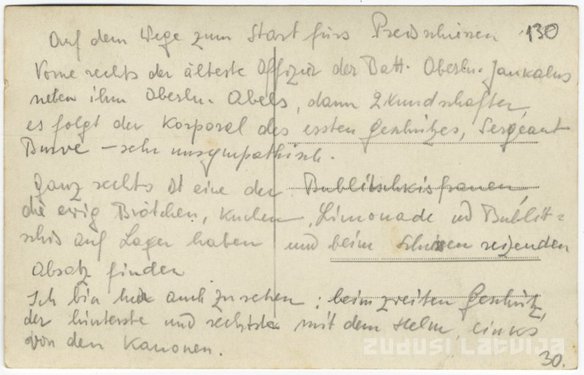 130
Auf dem Wege zum Start fürs Preisschiessen
Vorne rechts der älteste Offizier der Batt. Oberltn. Jankalns
neben ihm Oberltn. Abels, dann 2 Kundschafter,
es folgt der Korporal des ersten Geschützes, Sergeant
Burve – sehr unsympathisch.
Ganz rechts ist eine der Bublitschkisfrauen,
die ewig Brötchen, Kuchen, Limonade ud Bublit-
schis auf Lager haben und beim Schiessen reissenden
Absatz finden
Ich bin hier auch zu sehen: beim zweiten Geschütz,
der hinterste und rechtste mit dem Helm, links
von den Kanonen.
ZUDUSI LATVIJA
30.